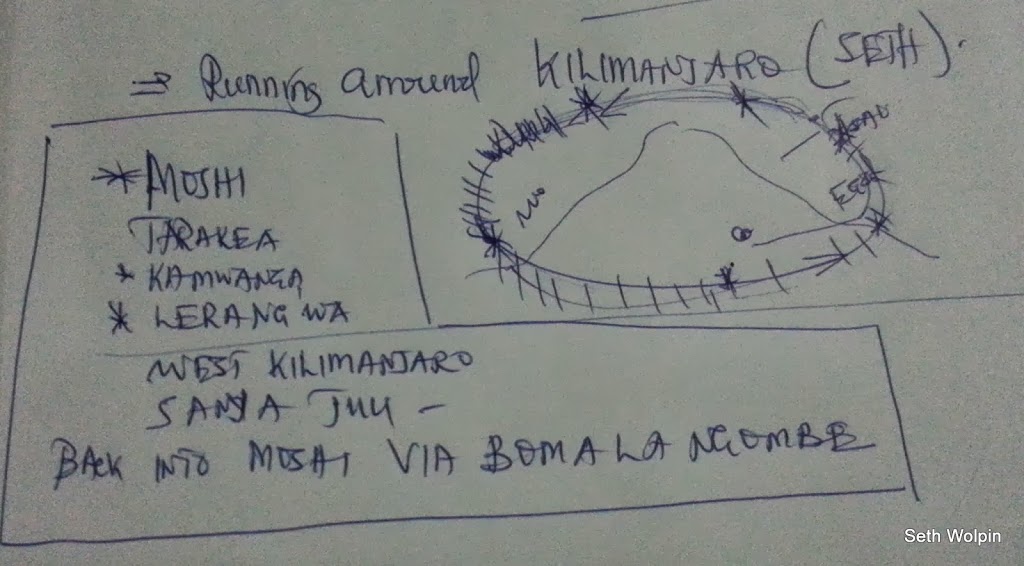 ⇒ Running arround KILIMANJARO (SETH).
* MOSHI
TARAKEA
* KAMWANGA
* LERANGWA
WEST KILIMANJARO
SANYA JUU -
BACK INTO MOSHI VIA BOMA LA NGOMBE
Seth Wolpin